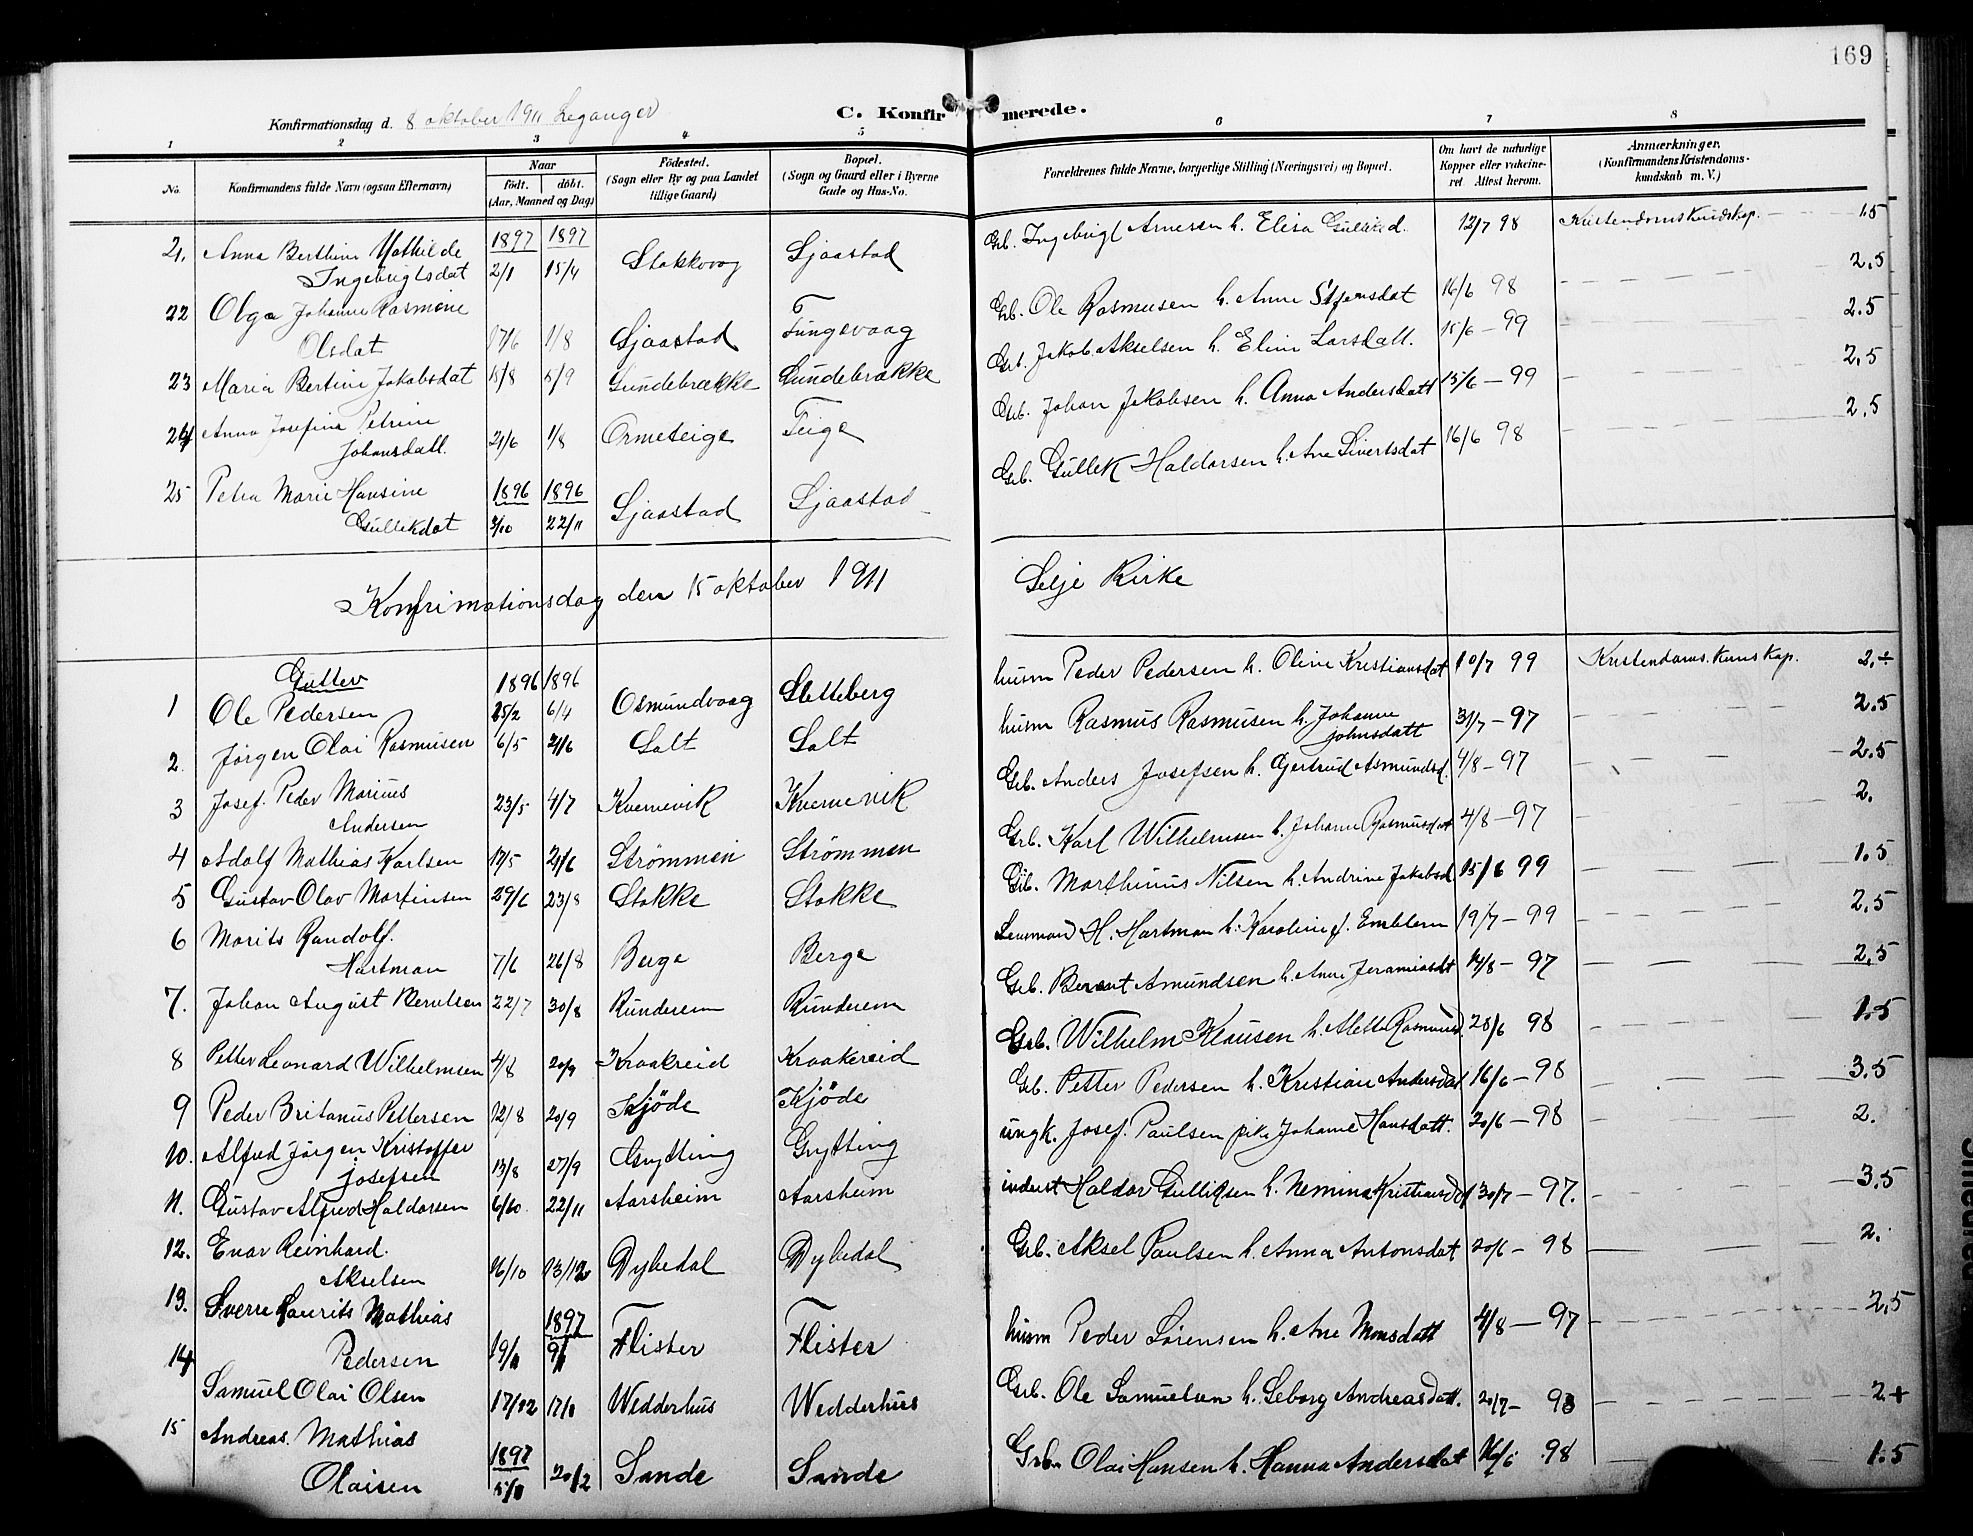 169
Konfirmationsdag d. 8 oktober 1911 Leganger
C. Konfirmerede.
1 2 3 4 5 6 7 8
No. Konfirmandens fulde Navn (ogsaa Efternavn) Naar födt. döbt. (Aar, Maaned og Dag) Födested. (Sogn eller By og paa Landet tillige Gaard) Bopæl. (Sogn og Gaard eller i Byerne Gade og Hus-No. Forældrenes fulde Navne, borgerlige Stilling (Næringsvei) og Bopæl. Om havt de naturlige Kopper eller vakcineret Attest herom. Anmærkninger. (Konfirmandens Kristendomskundskab m. V.)
21. Anna Berthine Mathilde 1897 1897
Ingebrigtsdat 2/1 15/4 Stokkevaag Sjaastad Grb. Ingebrigt Arnesen h. Elisa 12/7 98 Kristendomskundskap. 1.5
22 Olga Johanne Rasmine
Olsdat 17/6 1/8 Sjaastad Tungevaag Grb. Ole Rasmusen h. Anne 16/6 98 2.5
23 Maria Bertine Jakobsdat 15/8 5/9 Gundebrække Gundebrække Grb. Jakob Akselsen h. Eline Larsdatt. 15/6 - 99 2.5
24 Anna Josefine Petrine
Johansdatt. 21/6 1/8 Ormeteige Teige Grb. Johan Jakobsen h. Anna Andersdatt 15/6 - 99 2.5
25 Petra Marie Hansine 1896 1896
Gullikdat 3/10 22/11 Sjaastad Sjaastad Grb. Gullek Haldorsen h. Ane Sivertsdat 16/6 98 2.5
Konfrimationsdag den 15 oktober 1911 Selje Kirke
Gutter 1896 1896
1 Ole Pedersen 25/2 6/4 Osmundvaag Sletteberg husm Peder Pedersen h. Oline Kristiansdat 10/7 99 Kristendoms.kunskap. 2.÷
2. Jørgen Olai Rasmusen 6/5 21/6 Salt Salt husm Rasmus Rasmusen h. Johanne Johnsdatt 31/7 - 97 2.5
3 Josef. Peder Marius
Andersen 23/5 4/7 Kvernevik Kvernevik Grb. Anders Josefsen h. Gjertrud Asmundsd. 4/8 - 97 2.5
4 Adolf Mathias Karlsen 17/5 21/6 Strømmen Strømmen Grb. Karl Wilhelmsen h. Johanne Rasmusdat 4/8 - 97 2.
5 Gustav Olav Martinsen 29/6 23/8 Stokke Stokke Grb. Marthinus Nilsen h. Andrine Jakobsd. 15/6 99 1.5
6 Morits Randolf.
Hartman 7/6 26/8 Berge Berge Lensmand H. Hartman h. Karoline f. Emblem 19/7 - 99 2.5
7. Johan August Berntsen 22/7 30/8 Runderem Runderem Grb. Berent Amundsen h. Anne Jeramiasdt 14/8 - 97 2.5
8 Petter Leonard Wilhelmsen 4/8 20/9 Kraakreid Kraakereid Grb. Wilhelm Klausen h. Mette Rasmusd. 28/6 98 1.5
9 Peder Britanus Pettersen 12/8 20/9 Kjøde Kjøde Grb. Petter Pedersen h. Kristian Andersdat 16/6 - 98 3.5
10. Alfred Jørgen Kristoffer
Josefsen 13/8 27/9 Grytting Grytting ungk. Josef. Paulsen pike Johanne Hansdatt. 20/6 - 98 2.
11. Gustav Alfred Haldorsen 6/10 22/11 Aarsheim Aarsheim inderst Haldor Gulliksen h. Nemina Kristiansdat 30/7 - 97. 3.5
12. Enar Reinhard.
Akselsen 16/10 13/12 Dybedal Dybedal Grb. Aksel Paulsen h. Anna Antonsdat 20/6 - 98 2.
13. Sverre Laurits Mathias 1897
14 Pedersen 19/11 9/1 Flister Flister husm Peder Sørensen h. Ane Monsdatt 4/8 - 97 2,5
Samuel Olai Olsen 17/12 17/1 Wedderhus Wedderhus Grb. Ole Samuelsen h. Seborg Andreasdatt. 20/7 - 98 2+
15 Andreas. Mathias 1897
Olaisen 5/1 20/2 Sande Sande Grb. Olai Hansen h. Hanna Andersdat 16/6 98 1.5